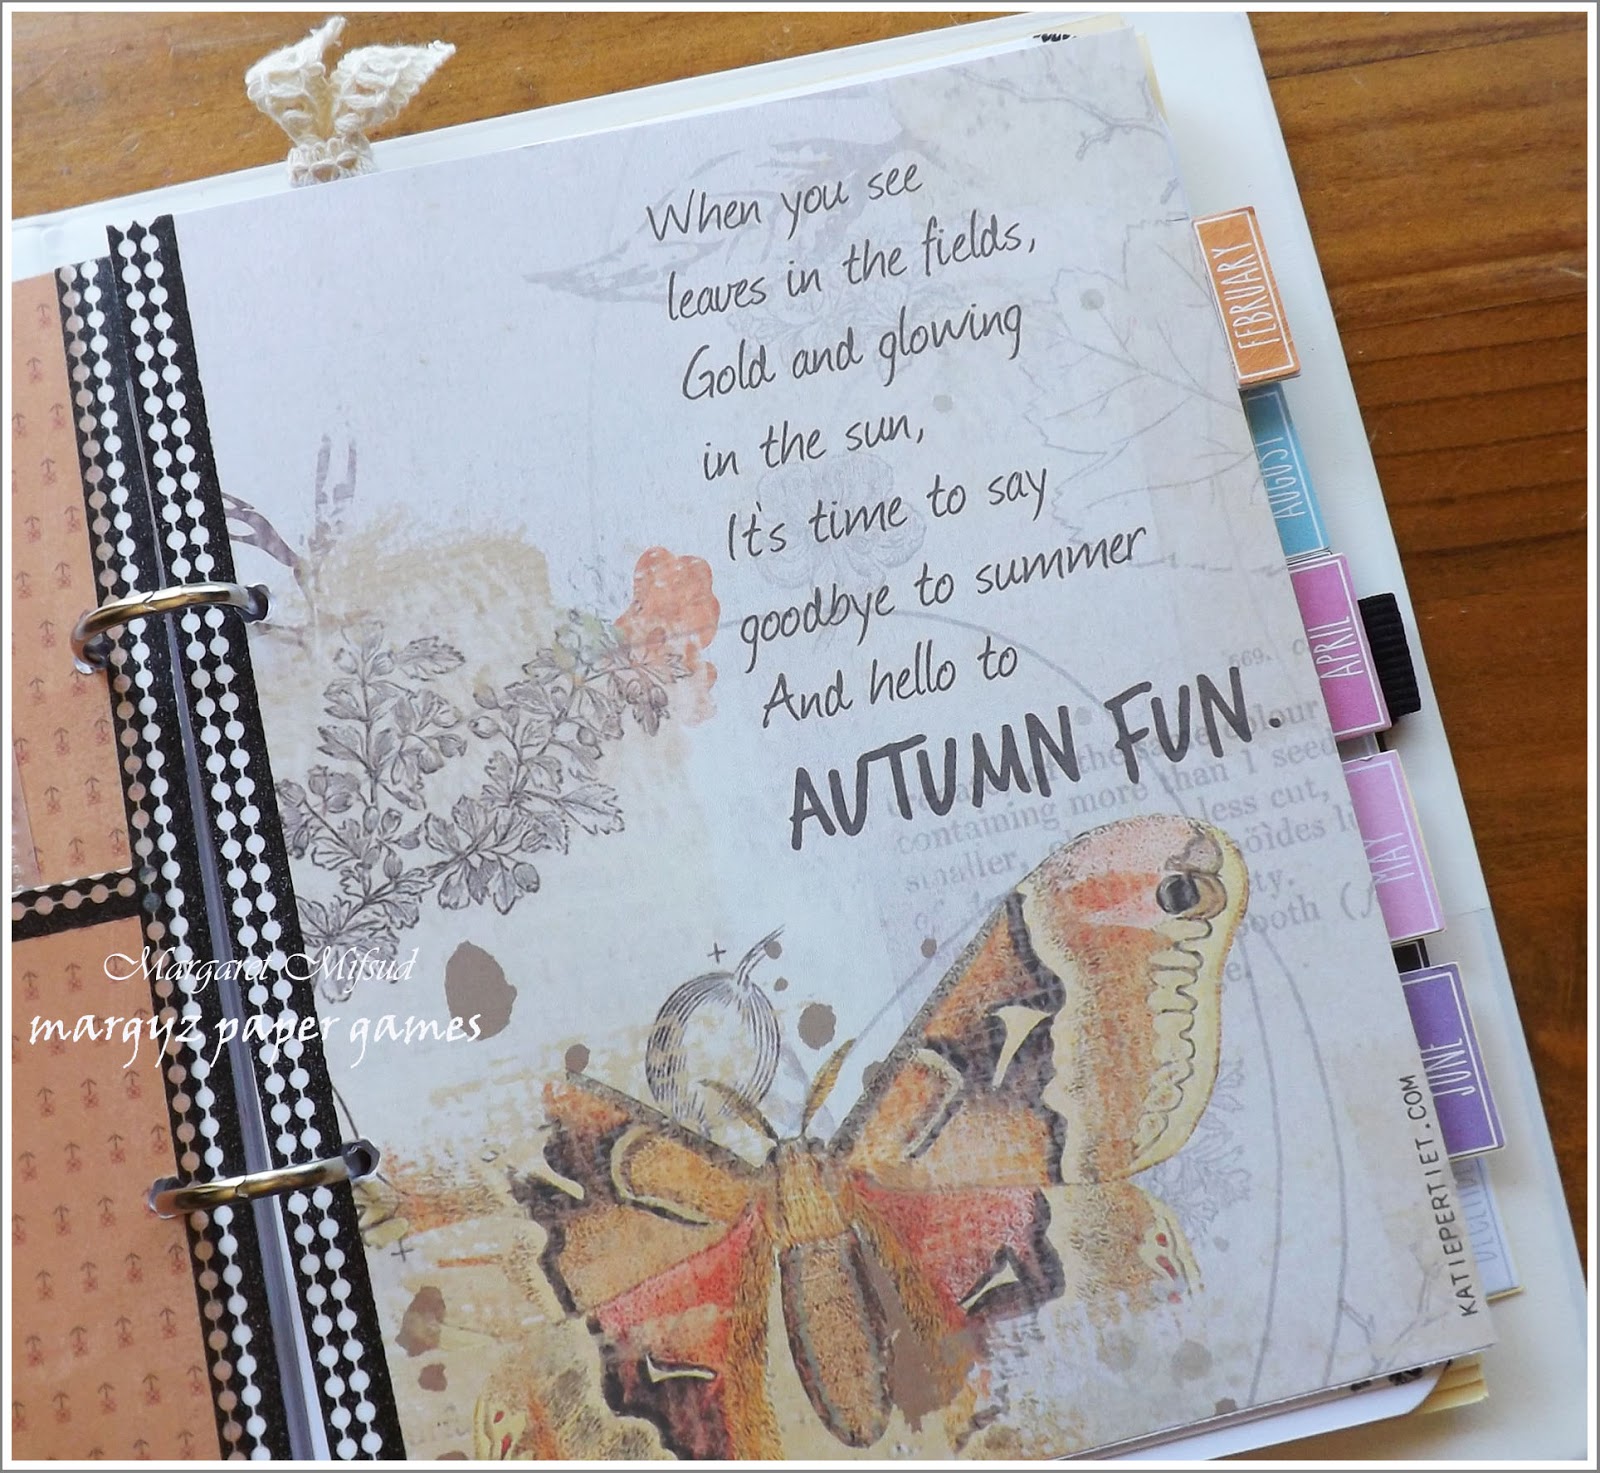 When you see
leaves in the fields,
Gold and glowing
in the sun,
It's time to say
goodbye to summer
And hello to
AUTUMN FUN.
FEBRUARY
AUGUST
APRIL
MAY
JUNE
KATIEPERTIET.COM
Margaret Mifsud
margyz paper games
569.
containing more than 1 seed
less cut,
smaller,